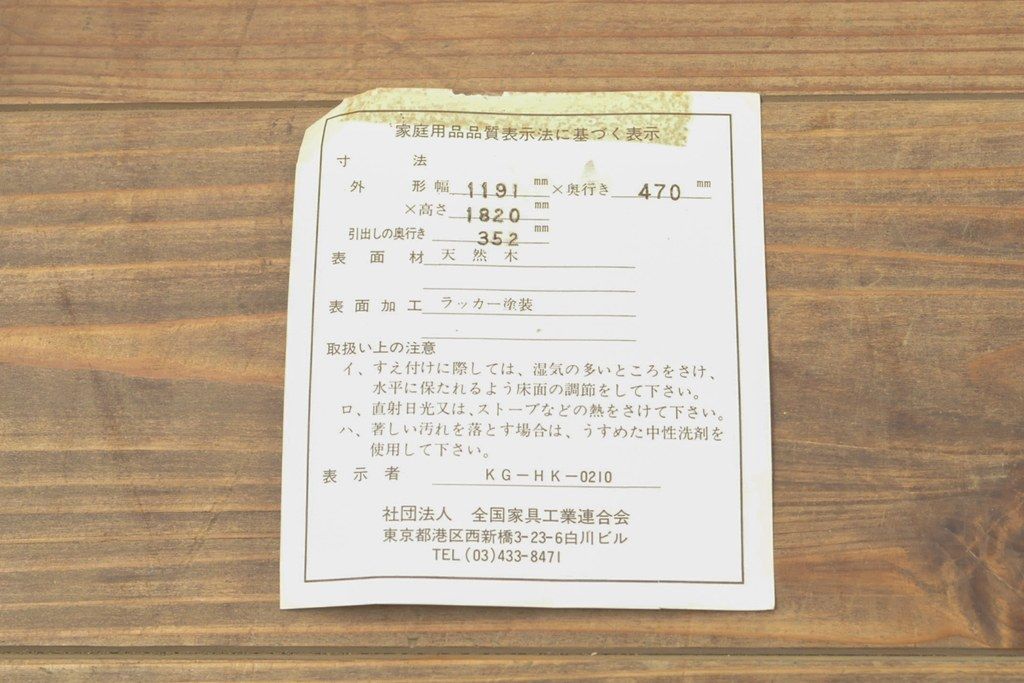 家庭用品品質表示法に基づく表示
寸法
外形幅 1191 mm ×奥行き 470 mm
×高さ 1820 mm
引出しの奥行き 352 mm
表面材 天然木
表面加工 ラッカー塗装
取扱い上の注意
イ、すえ付けに際しては、湿気の多いところをさけ、
水平に保たれるよう床面の調節をして下さい。
ロ、直射日光又は、ストーブなどの熱をさけて下さい。
ハ、著しい汚れを落とす場合は、うすめた中性洗剤を
使用して下さい。
表示者 KG-HK-0210
社団法人 全国家具工業連合会
東京都港区西新橋3-23-6白川ビル
TEL(03)433-8471